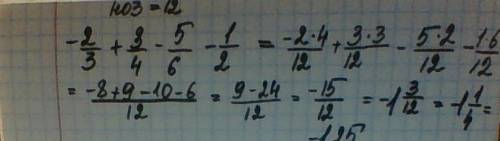 НОЗ = 12
-2/3 + 3/4 - 5/6 - 1/2 = -2·4/12 + 3·3/12 - 5·2/12 - 1·6/12
= -8+9-10-6/12 = 9-24/12 = -15/12 = -1 3/12 = -1 1/4 =
-1,25